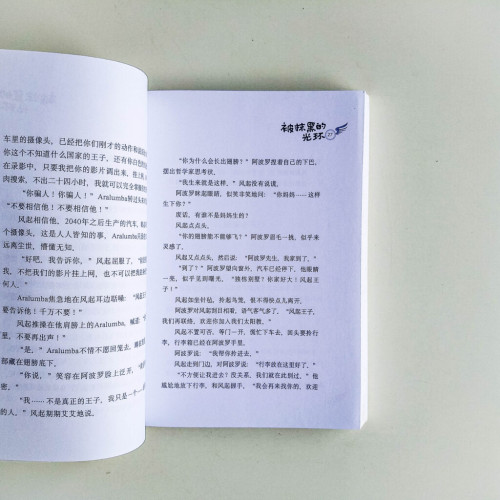 车里的摄像头,已经把你们刚才的动作和
你这个不知道什么国家的王子,还有你白色的
在录影中,只要我把你的影片调出来,
肉搜索,不出二十四小时,我就可以完全
“你骗人!你骗人!”Aralumba转过头
“不要相信他!不要相信他!”
风起相信他,2040年之后生产的汽车,
个摄像头,这是人人皆知的事,Aralumba
远离尘世,懵懂无知。
“好吧,我告诉你,”风起屈服了,“
我,不把我们的影片挂上网,也不可以把
何人。”
Aralumba焦急地在风起耳边聒噪:“风起
要告诉他!千万不要!”
风起推搡在他肩膀上的Aralumba,喊道
里,不要再出声!”
“是,”Aralumba不情不愿回笼去,
部藏在翅膀底下。
“你说,”笑容在阿波罗脸上泛开,“我
密。”
“我……不是真正的王子,我只是一个
的人,”风起期期艾艾地说。
被抹黑的
光环
27
“你为什么会长出翅膀?”阿波罗捏着自己的下巴,
摆出哲学家思考状。
“我生来就是这样,”风起没有说谎。
阿波罗眯眼起眼睛,似笑非笑地问:“你妈妈……这样
生下你?”
废话,有谁不是妈妈生的?
风起点点头。
“你的翅膀能不能够飞?”阿波罗眉毛一挑,似乎来
灵感了。
风起又点点头,然后说:“阿波罗先生,我家到了。”
“到了?”阿波罗望向窗外,汽车已经停下,他眼睛
一亮,似乎看见到曙光,“独栋别墅?你家好大!风起王
子!”
风起如坐针毡,拎起鸟笼,恨不得快点儿离开。
阿波罗对风起刮目相看,语气客气多了,“风起王子,
我们再联络,欢迎你加入我们太阳教。”
风起不置可否,等门一开,慌忙下车去,回头要拎行
李,行李箱已经在阿波罗手里。
阿波罗说:“我帮你拎进去。”
风起走到门边,对阿波罗说:“行李放在这里好了。”
“不方便让我进去?没关系,我们就在此别过,”他
尴尬地放下行李,和风起握手,“我会再来找你的,欢迎